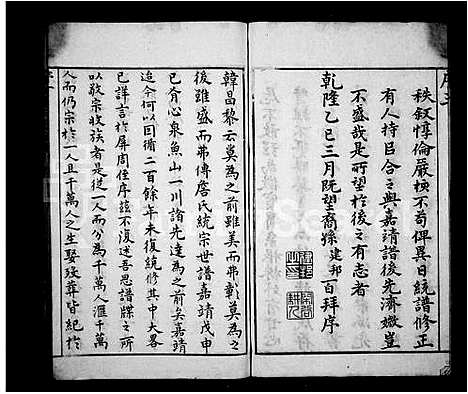 秩叙惇倫嚴梗不苟俾異日統譜修正
有人持已合之與嘉靖譜後先濟媺豈
不盛哉是所望於後之有志者
乾隆乙巳三月既望裔孫建邦百拜序
韓昌黎云莫為之前雖美而弗彰莫為之
後雖盛而弗傳詹氏統宗世譜嘉靖戊申
已肯心泉魚山一川諸先達為之前矣嘉靖
迨今何以回循二百餘年未復統修其中大畧
已詳言於屏周侄序茲不復述吾思譜牒之
以敬宗收族者是從一人而分為千萬人滙千萬
人而仍宗於一人且千萬人之生娶歿葬皆紀於